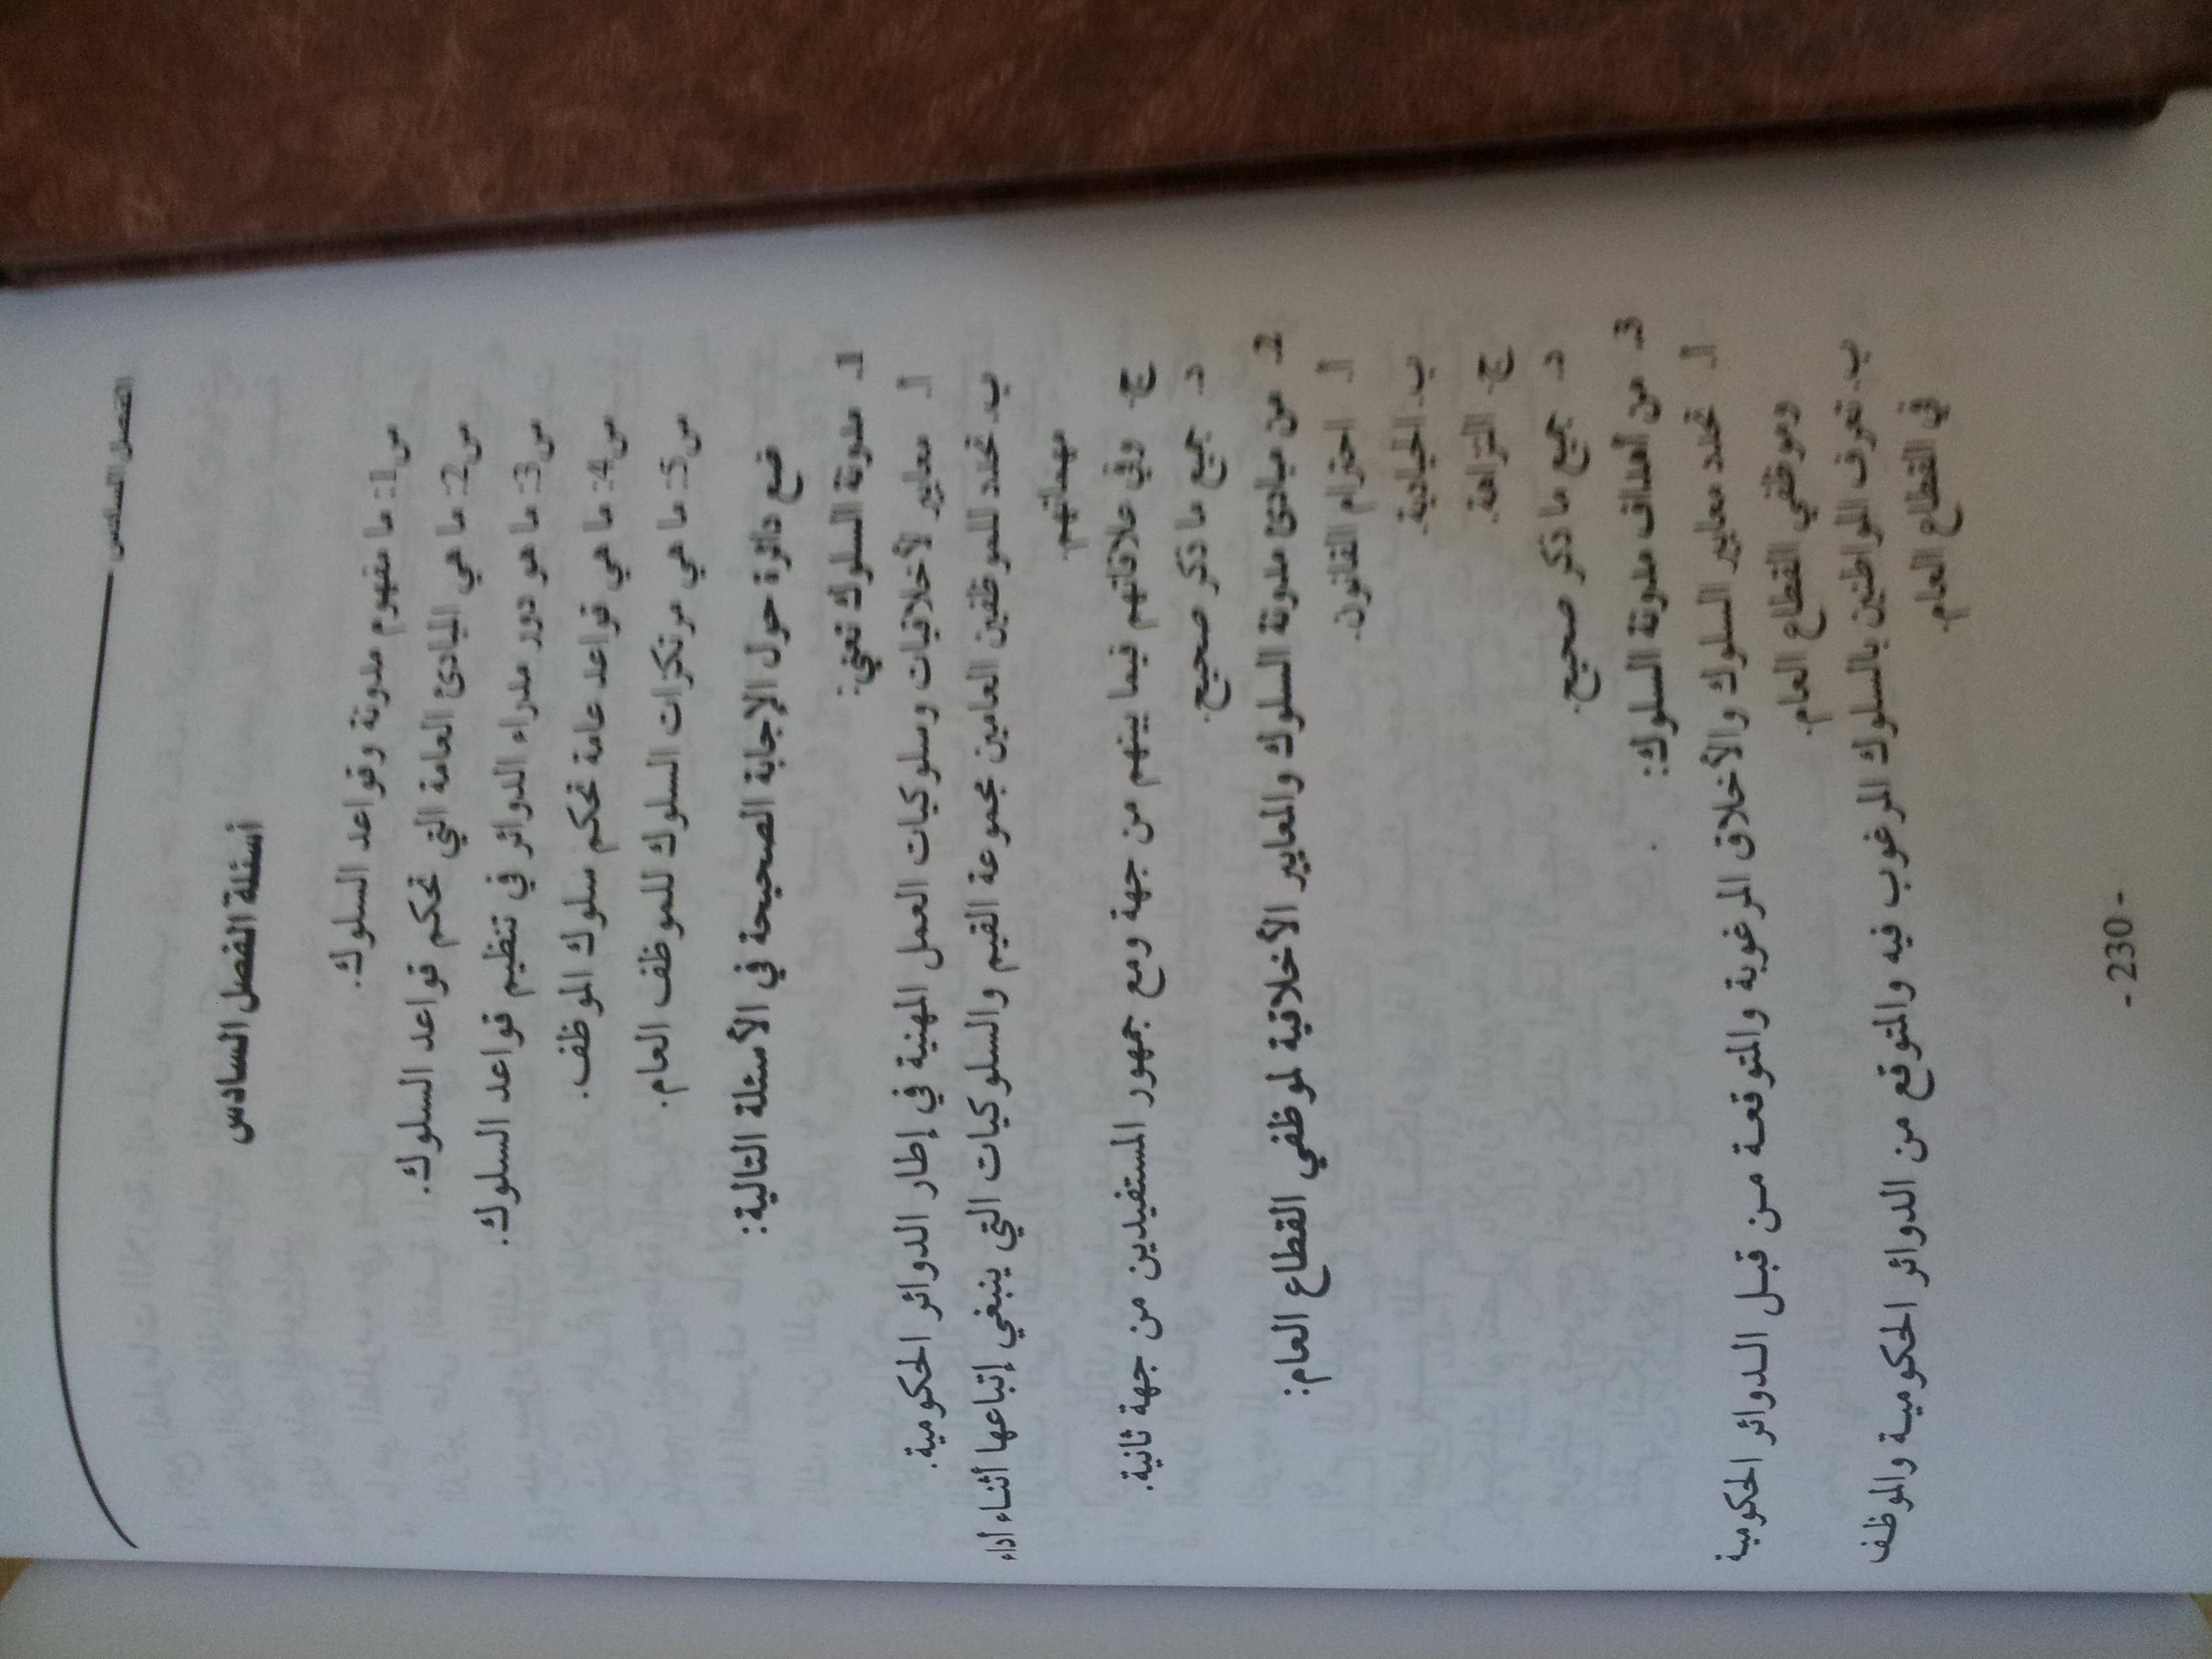 الفصل السادس
أسئلة الفصل السادس
س1: ما مفهوم مدونة وقواعد السلوك.
س2: ما هي المبادئ العامة التي تحكم قواعد السلوك.
س3: ما هو دور مدراء الدوائر في تنظيم قواعد السلوك.
س4: ما هي قواعد عامة تحكم سلوك الموظف.
س5: ما هي مرتكزات السلوك للموظف العام.
ضع دائرة حول الإجابة الصحيحة في الأسئلة التالية:
1. مدونة السلوك تعني:
أ. معايير لأخلاقيات وسلوكيات العمل المهنية في إطار الدوائر الحكومية.
ب. تحدد للموظفين العامين مجموعة القيم والسلوكيات التي ينبغي إتباعها أثناء أداء
مهماتهم.
ج. وفي علاقاتهم فيما بينهم من جهة ومع جمهور المستفيدين من جهة ثانية.
د. جميع ما ذكر صحيح.
2. من مبادئ مدونة السلوك والمعايير الأخلاقية لموظفي القطاع العام:
أ. احترام القانون.
ب. الحيادية.
ج. النزاهة.
د. جميع ما ذكر صحيح.
3. من أهداف مدونة السلوك:
أ. تحدد معايير السلوك والأخلاق المرغوبة والمتوقعة من قبل الدوائر الحكومية
وموظفي القطاع العام.
ب. تعرف المواطنين بالسلوك المرغوب فيه والمتوقع من الدوائر الحكومية والموظف
في القطاع العام.
- 230 -